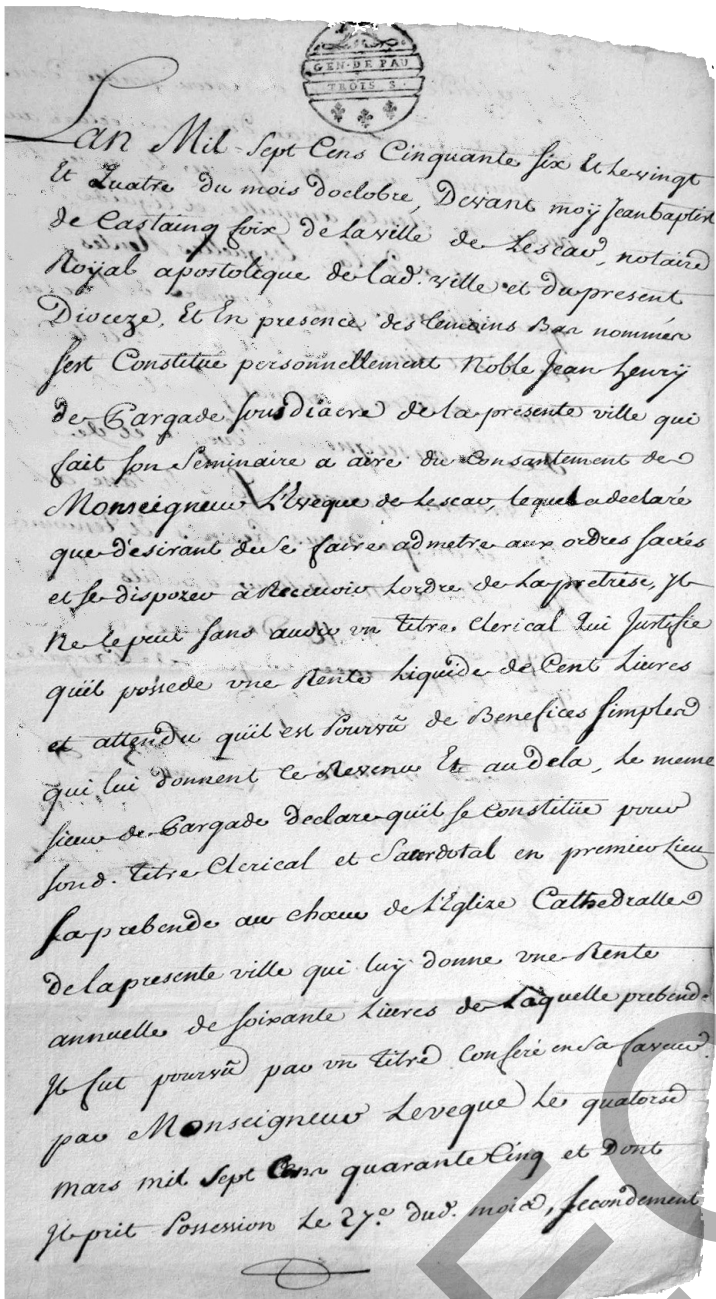 GEN·DE PAU
TROIS S·
Lan Mil Sept Cens Cinquante six Et Le vingt
Et Quatre du mois doctobre, Devant moÿ Jean baptist
de Castaing foix de La ville de Lescar, notaire
Roÿal apostolique de lad. ville et du present
Dioceze, Et En presence des temoins Bas nommés
sest Constitué personnellement Noble Jean henrÿ
de Pargade sousdiacre de la presente ville qui
fait son Seminaire a aire du Consantement de
Monseigneur L'Eveque de Lescar, lequel a declaré
que desirant de se faire admetre aux ordres sacrés
et se disposer à Recevoir Lordre de La pretrise, Jl
Ne le peut sans avoir vn titre Clerical qui Justifie
quïl possede vne Rente Liquide de Cent Livres
et attendu quïl est Pourvû de Benefices simples
qui lui donnent ce Revenu Et au dela, Le meme
sieur de Pargade declare quïl se Constitüe pour
sond. titre Clerical et Sacerdotal en premier Lieu
La prebende au chœur de l'Eglize Cathedralle
de la presente ville qui luÿ donne vne Rente
annuelle de soixante Livres de Laquelle prebende
Jl fut pourvû par vn titre Conferé en sa faveur
par Monseigneur Leveque Le quatorse
mars mil sept Cens quarante Cinq et Dont
Jl prit Possession Le 27e. dud. mois, secondement